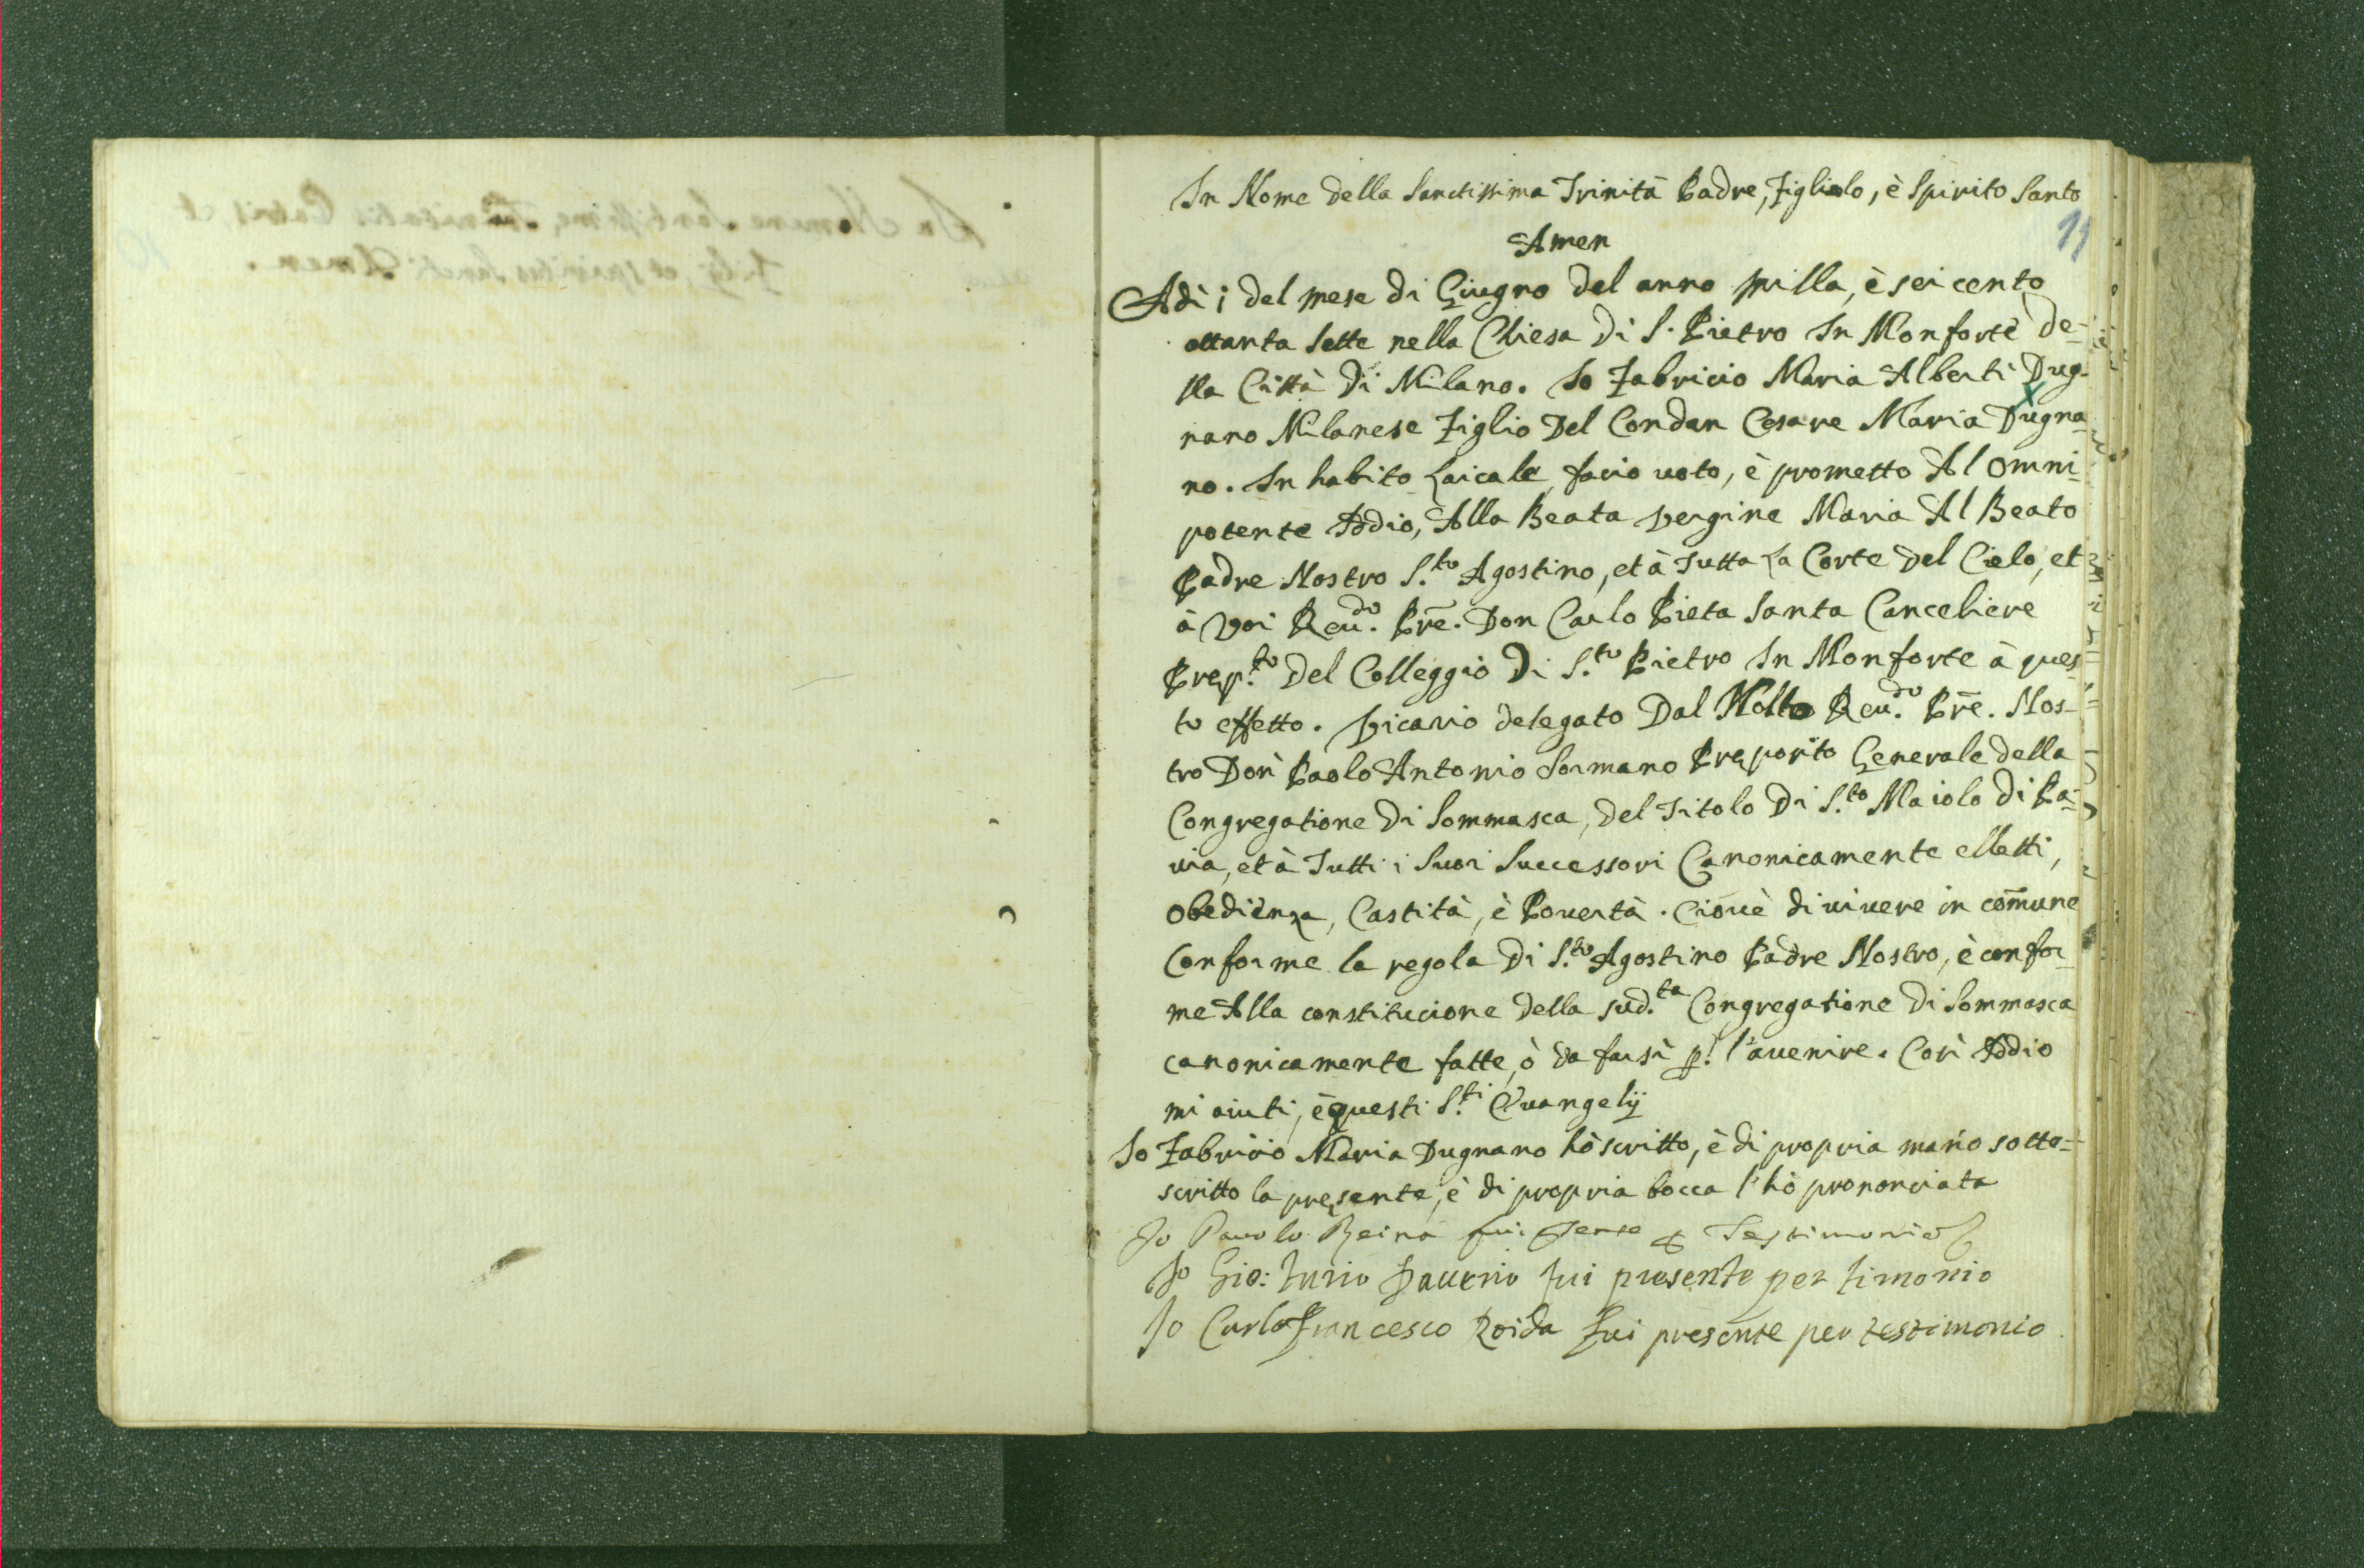 In Nome della Sanctissima Trinità Padre, Figliolo, è Spirito Santo
11
Amen
Adì i del mese di Giugno del anno milla, è sei cento
ottanta sette nella Chiesa di S. Pietro In Monforte de-
lla Città di Milano. Io Fabricio Maria Alberti Dug-
nano Milanese Figlio Del Condan Cesare Maria Dugna-
no. In habito Laicale, facio uoto, è prometto Al Omni-
potente Iddio, Alla Beata Vergine Maria Al Beato
Padre Nostro S.to Agostino, et à Tutta La Corte Del Cielo, et
à Voi Reu.do Pre. Don Carlo Pieta Santa Canceliere
Prep.to Del Colleggio Di S.to Pietro In Monforte à ques-
to effetto. Vicario delegato Dal Molto Reu.do Pre. Nos-
tro Don Paolo Antonio Sormano Preposito Generale della
Congregatione Di Sommasca, del Titolo Di S.to Maiolo di Pa-
uia, et à Tutti i Suoi Successori Canonicamente elletti,
obedienza, Castità, è Pouertà. Ciouè di uiuere in comune
Conforme la regola Di S.to Agostino Padre Nostro, è confor-
me Alla constitucione della sud.ta Congregatione di Sommasca
canonicamente fatte, ò da farsi p. l'auenire. Così Iddio
mi aiuti, è questi S.ti Euangelij
Io Fabricio Maria Dugnano hò scritto, è di propria mano sotto-
scritto la presente, è di propria bocca l'hò prononciata
Io Pauolo Reina fui Testimonio
Io Gio: fui presente per timonio
Io Carlo Francesco Roida fui presente per testimonio